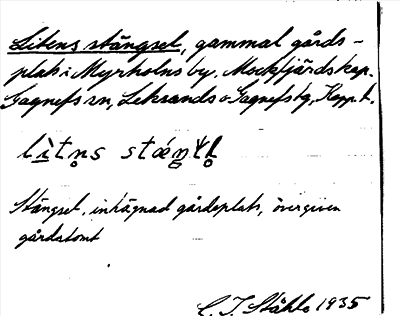 Litens stängsel, gammal gårds-
plats i Myrholns by, Mockfjärds kap.
Gagnefs sn, Leksands o Gagnefs tg, Kopp. l.
Stängsel, inhägnad gårdsplats, övergiven
gårdstomt
C. I. Ståhle 1935